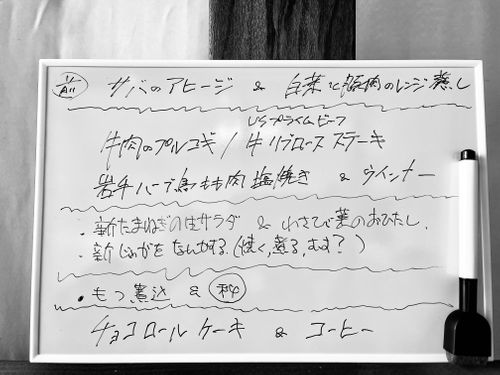 前 サバのアヒージ & 白菜と豚肉のレンジ蒸し
USプライムビーフ
牛肉のプルコギ / 牛リブロースステーキ
岩手ハーブ鳥もも肉塩焼き & ウインナー
・新たまねぎの生サラダ & わさび葉のおひたし.
・新じゃがをなんかする.(焼く,煮る,むす?)
・もつ煮込 &
チョコロールケーキ & コーヒー